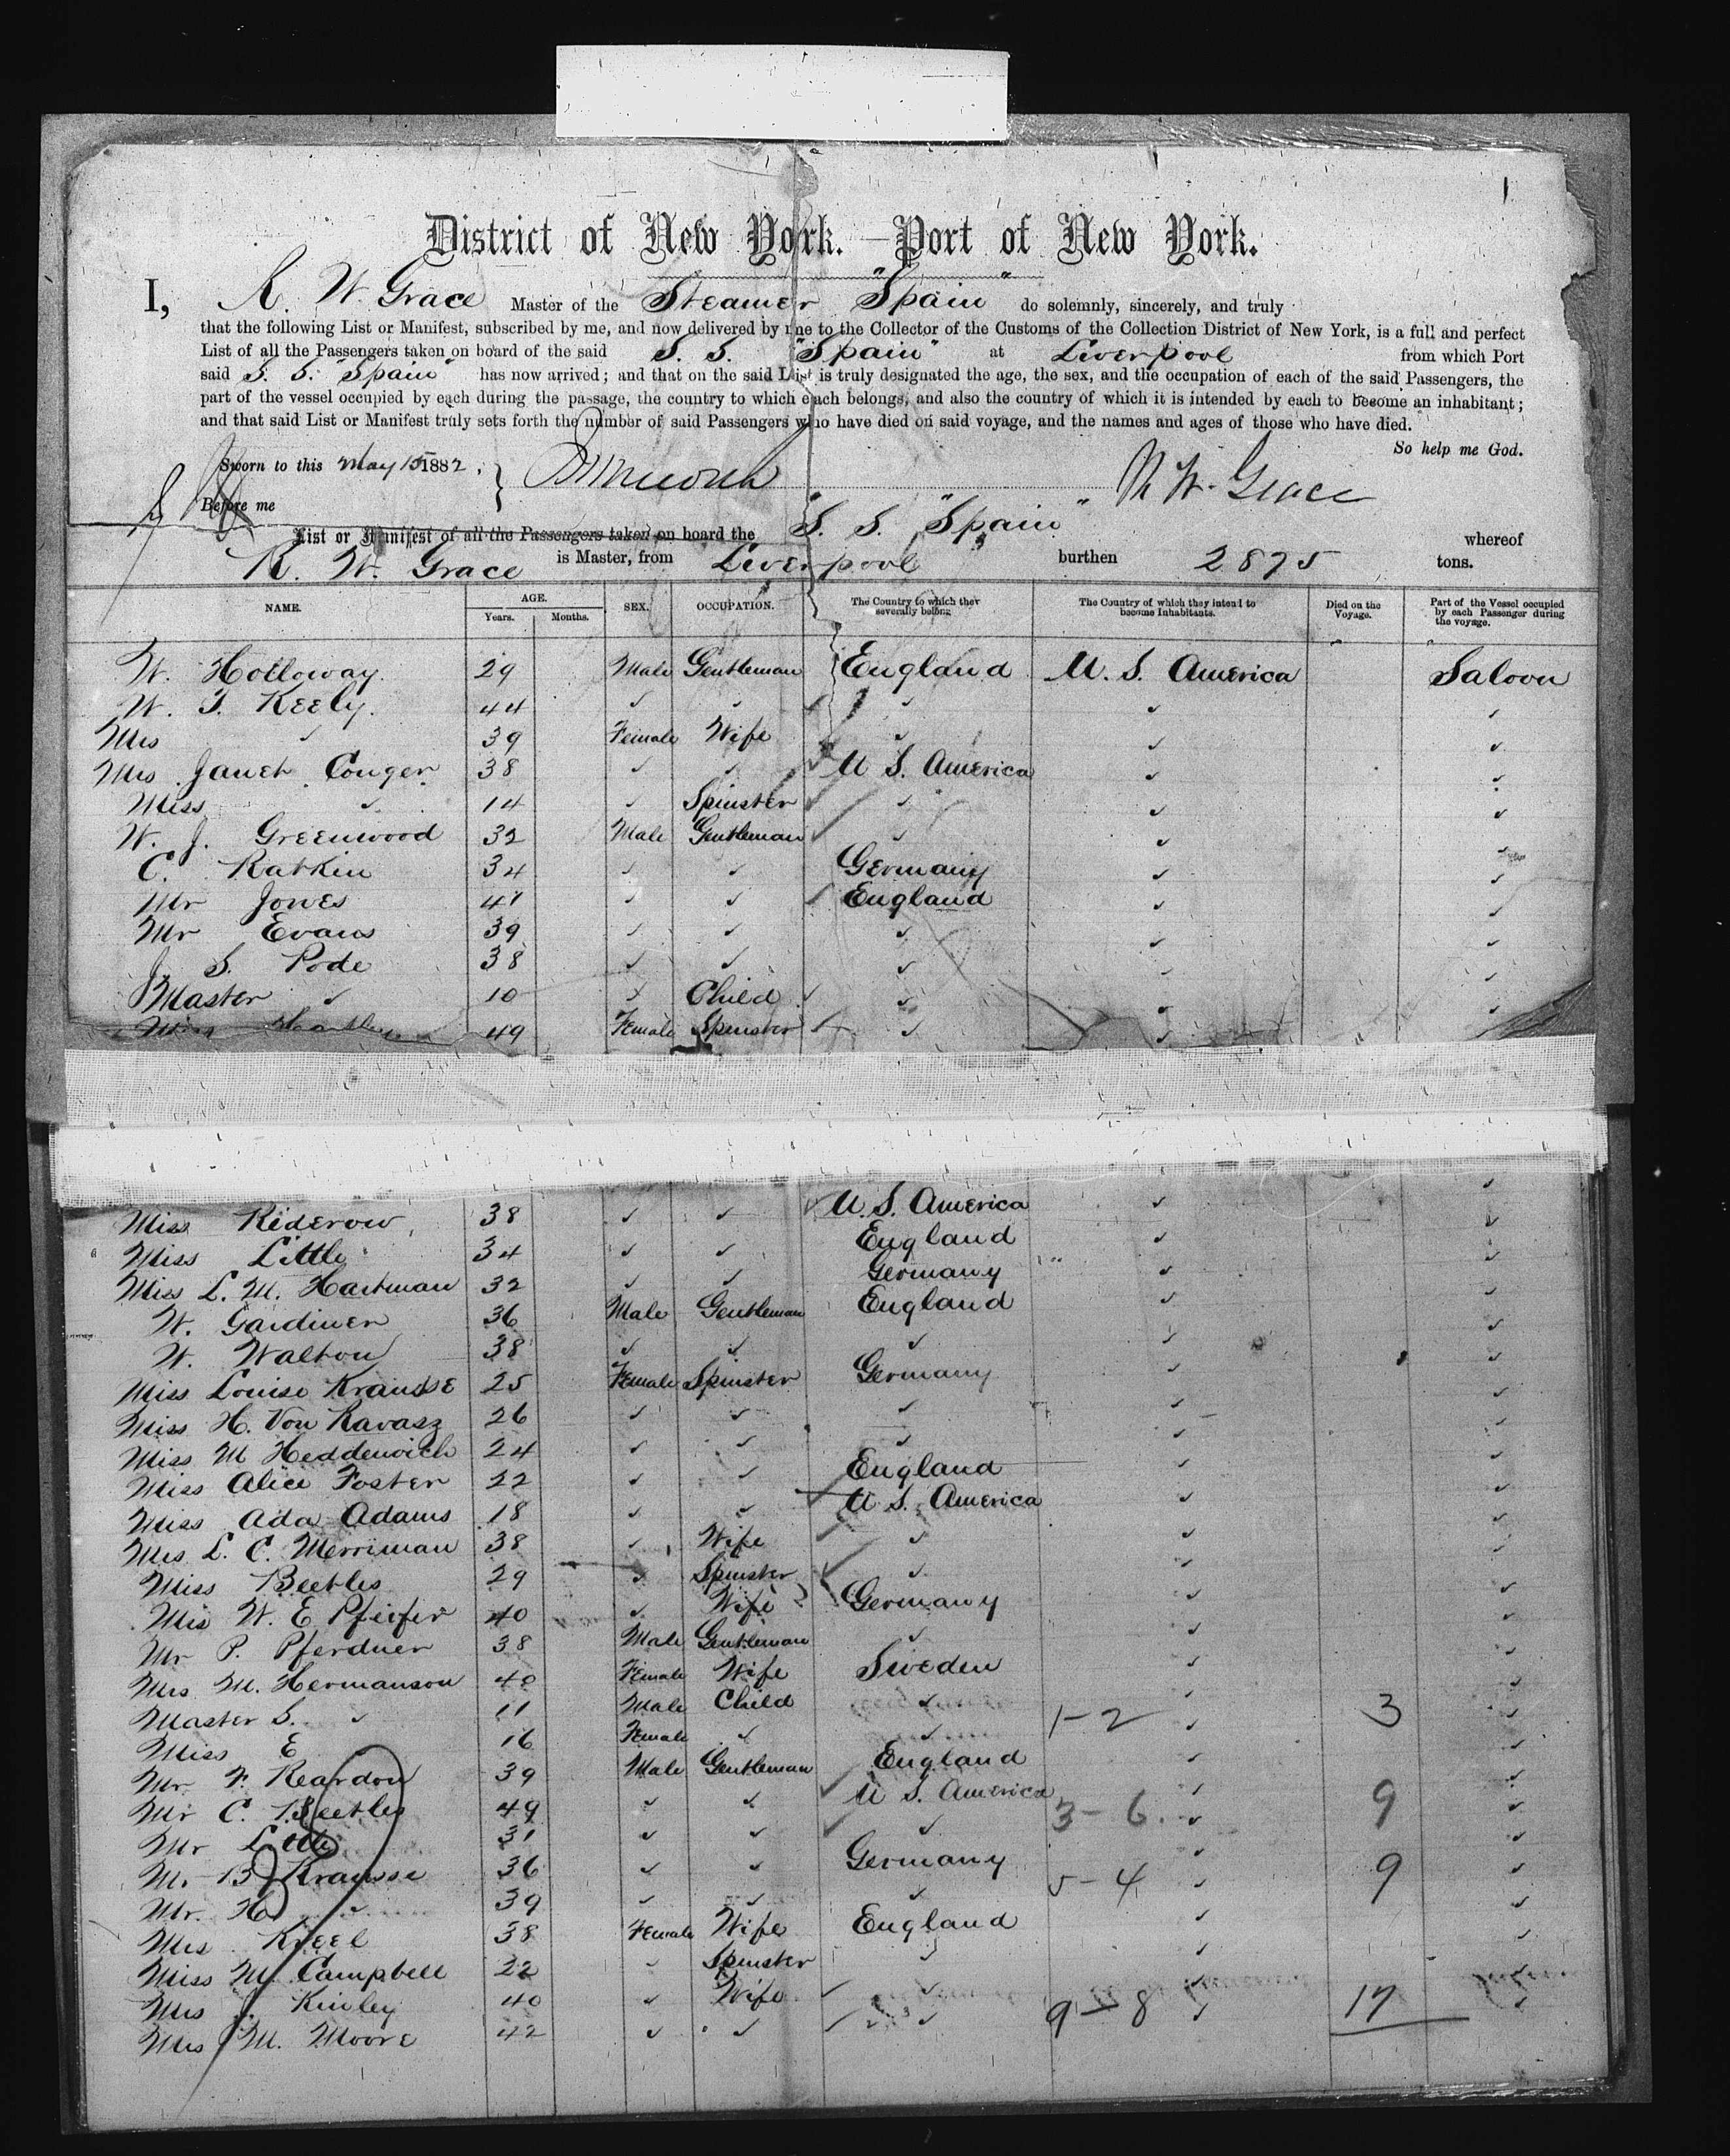 1
District of New York.—Port of New York.
I, R. W. Grace Master of the Steamer "Spain" do solemnly, sincerely, and truly
that the following List or Manifest, subscribed by me, and now delivered by me to the Collector of the Customs of the Collection District of New York, is a full and perfect
List of all the Passengers taken on board of the said S. S. "Spain" at Liverpool from which Port
said S. S. "Spain" has now arrived; and that on the said List is truly designated the age, the sex, and the occupation of each of the said Passengers, the
part of the vessel occupied by each during the passage, the country to which each belongs, and also the country of which it is intended by each to become an inhabitant;
and that said List or Manifest truly sets forth the number of said Passengers who have died on said voyage, and the names and ages of those who have died.
So help me God.
Sworn to this May 15 1882. R W. Grace
Before me
List or Manifest of all the Passengers taken on board the "S. S. "Spain" whereof
R. W. Grace is Master, from Liverpool burthen 2875 tons.
NAME. AGE. Years. Months. SEX. OCCUPATION. The Country to which they severally belong The Country of which they intend to become Inhabitants. Died on the Voyage. Part of the Vessel occupied by each Passenger during the voyage.
W. Holloway. 29 Male Gentleman England U. S. America Saloon
W. T. Keely. 44 ✓ ✓ ✓ ✓ ✓
Mrs ✓ 39 Female Wife ✓ ✓ ✓
Mrs Janet Conger 38 ✓ ✓ U S. America ✓ ✓
Miss ✓ 14 ✓ Spinster ✓ ✓ ✓
W. J. Greenwood 32 Male Gentleman ✓ ✓ ✓
C. Ratkin 34 ✓ ✓ Germany ✓ ✓
Mr Jones 41 ✓ ✓ England ✓ ✓
Mr Evans 39 ✓ ✓ ✓ ✓ ✓
J. S. Pode 38 ✓ ✓ ✓ ✓ ✓
Master ✓ 10 ✓ Child ✓ ✓ ✓
Miss 49 Female Spinster ✓ ✓ ✓
Miss Riderow 38 ✓ ✓ U. S. America ✓ ✓
Miss Little 34 ✓ ✓ England ✓ ✓
Miss L. M. Hartman 32 ✓ ✓ Germany ✓ ✓
W. Gardiner 36 Male Gentleman England ✓ ✓
W. Walton 38 ✓ ✓ ✓ ✓ ✓
Miss Louise Krausse 25 Female Spinster Germany ✓ ✓
Miss H. Von Ravasz 26 ✓ ✓ ✓ ✓ ✓
Miss M Heddenwich 24 ✓ ✓ ✓ ✓ ✓
Miss Alice Foster 22 ✓ ✓ England ✓ ✓
Miss Ada Adams 18 ✓ ✓ U. S. America ✓ ✓
Mrs L. C. Merriman 38 ✓ Wife ✓ ✓ ✓
Miss Beebles 29 ✓ Spinster ✓ ✓ ✓
Mrs W. E Pfeifer 40 ✓ Wife Germany ✓ ✓
Mr P. Pferdner 38 Male Gentleman ✓ ✓ ✓
Mrs M. Hermanson 40 Female Wife Sweden ✓ ✓
Master S. ✓ 11 Male Child ✓ 1-2 ✓ 3 ✓
Miss E 16 Female ✓ ✓ ✓
Mr. Reardon 39 Male Gentleman England ✓ ✓
Mr C. Beebles 49 ✓ ✓ U S. America 3-6. ✓ 9 ✓
Mr Little 31 ✓ ✓ ✓ ✓ ✓
Mr B Krausse 36 ✓ ✓ Germany 5-4 ✓ 9 ✓
Mr. H. ✓ 39 ✓ ✓ ✓ ✓
Mrs Kneel 38 Female Wife England ✓ ✓
Miss M. Campbell 22 ✓ Spinster ✓ ✓ ✓
Mrs Kinley 40 ✓ Wife ✓ ✓
Mrs M. Moore 42 ✓ ✓ ✓ 9-8 ✓ 17 ✓